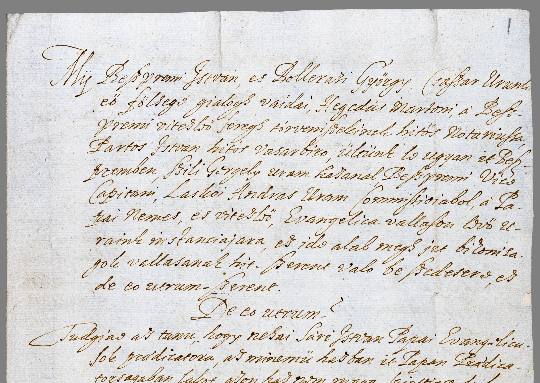 1
Mij Beszpremi Istvan es Bolleradi Györgÿ, Czaszar Urunk
eö fölsege gialogh vaidai, Hegedüs Martoni, a Besz-
premi vitézlö seregh törvenszekinek hitös Notariussa
Bartos Istvan hitös vasarbiro, ültünk le ugyan it Besz-
premben, Szili Gergely uram hadanal Beszpremi Vice
Capitani, Laskai Andras Uram Commissioiabol, a Pa-
pai Nemes, es vitézlö, Evangelica vallason levö U-
raink instanciajara, ez ide alab megh irt bizonisa-
gok vallasanak hit szerent valo be szedesere, ez
de eo utrum szerent.
De eo utrum?
Tudgiae az tanu, hogy nehai Sari Istvan Papai Evangelicu-
sok predicatora, az minemü hazban it Papan Predica-
torsagaban lakot, azon haz nem